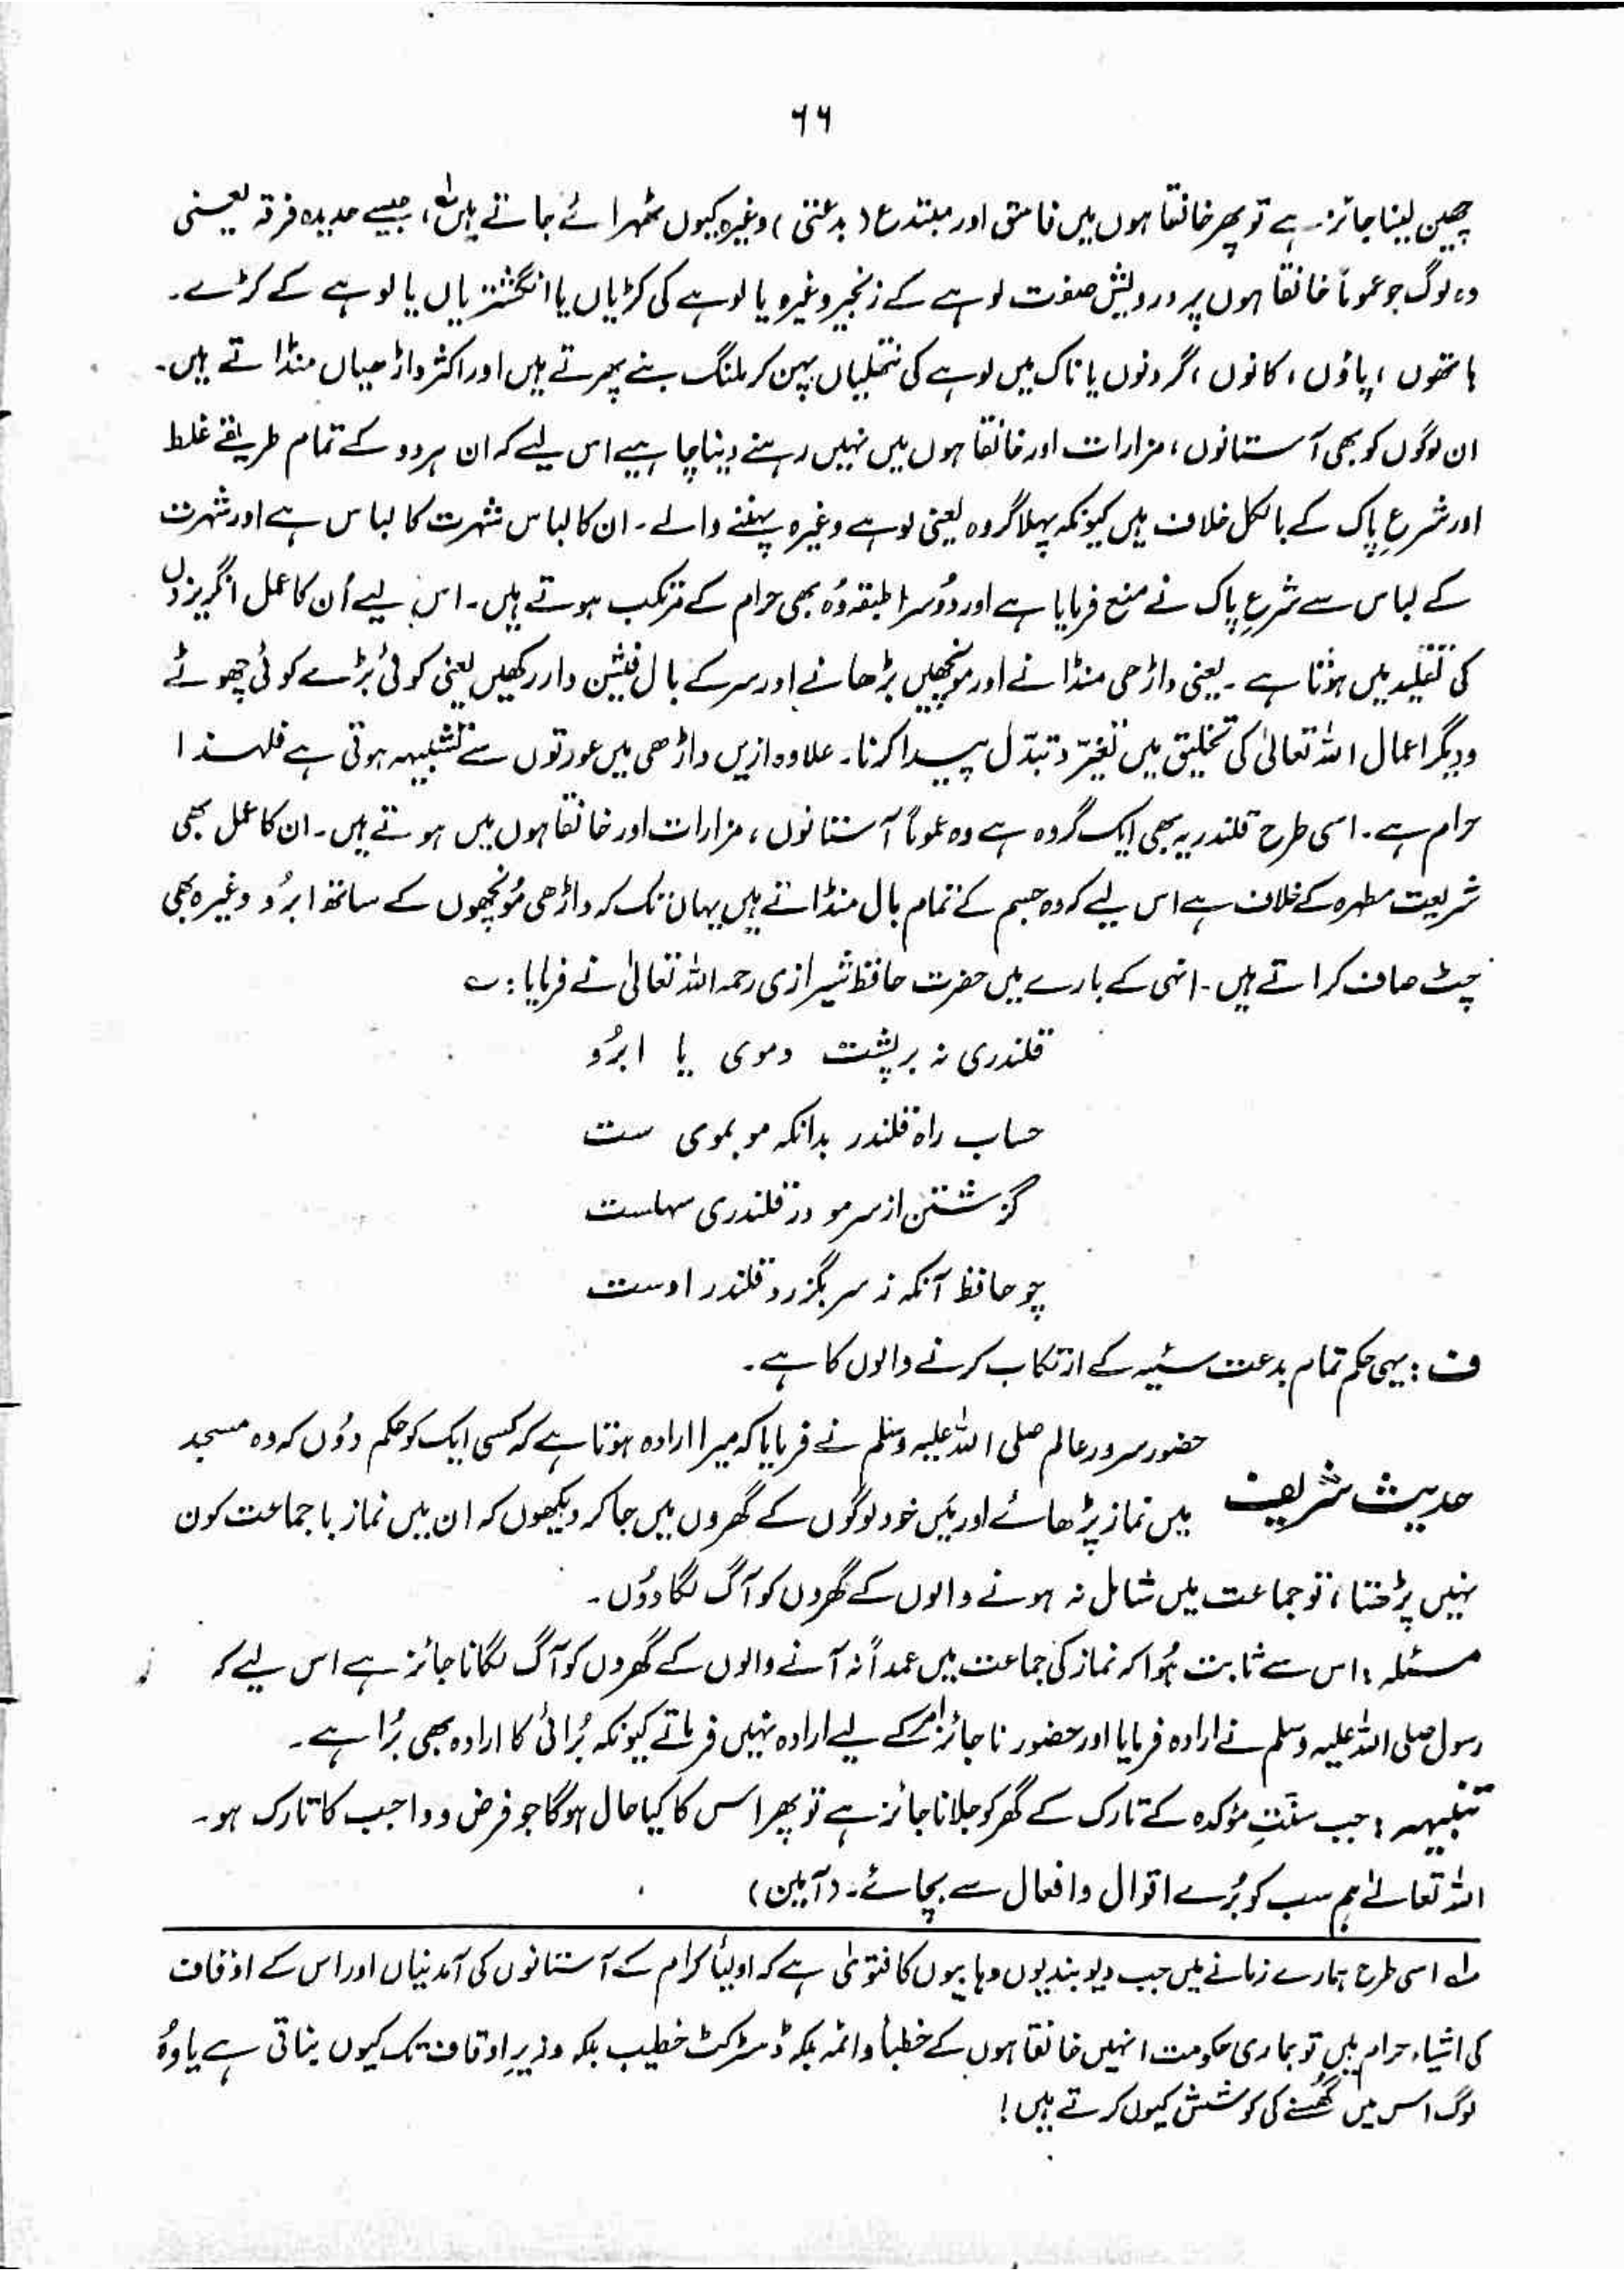 ۶۶
چھین لینا جائز ہے تو پھر خانقاہوں میں فاسق اور مبتدع (بدعتی) وغیرہ کیوں ٹھہرائے جاتے ہیں لہ، جیسے حدیدہ فرقہ یعنی
وہ لوگ جو عموماً خانقاہوں پر درویش صفت لوہے کے زنجیر وغیرہ یا لوہے کی کڑیاں یا انگشتریاں یا لوہے کے کڑے۔
ہاتھوں، پاؤں، کانوں، گردنوں یا ناک میں لوہے کی نتھلیاں پہن کر ملنگ بنے پھرتے ہیں اور اکثر داڑھیاں منڈاتے ہیں۔
ان لوگوں کو بھی آستانوں، مزارات اور خانقاہوں میں نہیں رہنے دینا چاہیے اس لیے کہ ان ہر دو کے تمام طریقے غلط
اور شرعِ پاک کے بالکل خلاف ہیں کیونکہ پہلا گروہ یعنی لوہے وغیرہ پہننے والے۔ ان کا لباس شہرت کا لباس ہے اور شہرت
کے لباس سے شرعِ پاک نے منع فرمایا ہے اور دُوسرا طبقہ وُہ بھی حرام کے مرتکب ہوتے ہیں۔ اس لیے اُن کا عمل انگریزوں
کی تقلید میں ہوتا ہے۔ یعنی داڑھی منڈانے اور مونچھیں بڑھانے اور سر کے بال فیشن دار رکھیں یعنی کوئی بڑے کوئی چھوٹے
و دیگر اعمال اللہ تعالیٰ کی تخلیق میں تغیّر و تبدّل پیدا کرنا۔ علاوہ ازیں داڑھی میں عورتوں سے تشبیہہ ہوتی ہے فلہذا
حرام ہے۔ اسی طرح قلندریہ بھی ایک گروہ ہے وہ عموماً آستانوں، مزارات اور خانقاہوں میں ہوتے ہیں۔ ان کا عمل بھی
شریعت مطہرہ کے خلاف ہے اس لیے کہ وہ جسم کے تمام بال منڈاتے ہیں یہاں تک کہ داڑھی مُونچھوں کے ساتھ ابرُو وغیرہ بھی
چٹ صاف کراتے ہیں۔ انہی کے بارے میں حضرت حافظ شیرازی رحمہ اللہ تعالیٰ نے فرمایا: ؎
قلندری نہ بریشت و موی یا ابرُو
حساب راہ قلندر بدانکہ مو بموی ست
گزشتن از سر مو در قلندری سہلست
چو حافظ آنکہ ز سر بگزرد قلندر اوست
ف: یہی حکم تمام بدعت سئیہ کے ارتکاب کرنے والوں کا ہے۔
حدیث شریف حضور سرور عالم صلی اللہ علیہ وسلم نے فرمایا کہ میرا ارادہ ہوتا ہے کہ کسی ایک کو حکم دوُں کہ وہ مسجد
میں نماز پڑھائے اور میَں خود لوگوں کے گھروں میں جا کر دیکھوں کہ ان میں نماز با جماعت کون
نہیں پڑھتا، تو جماعت میں شامل نہ ہونے والوں کے گھروں کو آگ لگا دوُں۔
مسئلہ: اس سے ثابت ہُوا کہ نماز کی جماعت میں عمداً نہ آنے والوں کے گھروں کو آگ لگانا جائز ہے اس لیے کہ
رسول صلی اللہ علیہ وسلم نے ارادہ فرمایا اور حضور ناجائز امر کے لیے ارادہ نہیں فرماتے کیونکہ بُرائی کا ارادہ بھی بُرا ہے۔
تنبیہہ: جب سنّتِ مؤکدہ کے تارک کے گھر کو جلانا جائز ہے تو پھر اس کا کیا حال ہوگا جو فرض و واجب کا تارک ہو۔
اللہ تعالےٰ ہم سب کو بُرے اقوال و افعال سے بچائے۔ (آمین)
لہ اسی طرح ہمارے زمانے میں جب دیوبندیوں وہابیوں کا فتویٰ ہے کہ اولیأ کرام کے آستانوں کی آمدنیاں اور اس کے اوقات
کی اشیاء حرام ہیں تو ہماری حکومت انہیں خانقاہوں کے خطبأ و ائمہ بلکہ ڈسٹرکٹ خطیب بلکہ وزیرِ اوقاف تک کیوں بناتی ہے یا وہُ
لوگ اس میں گھُسنے کی کوشش کیوں کرتے ہیں!